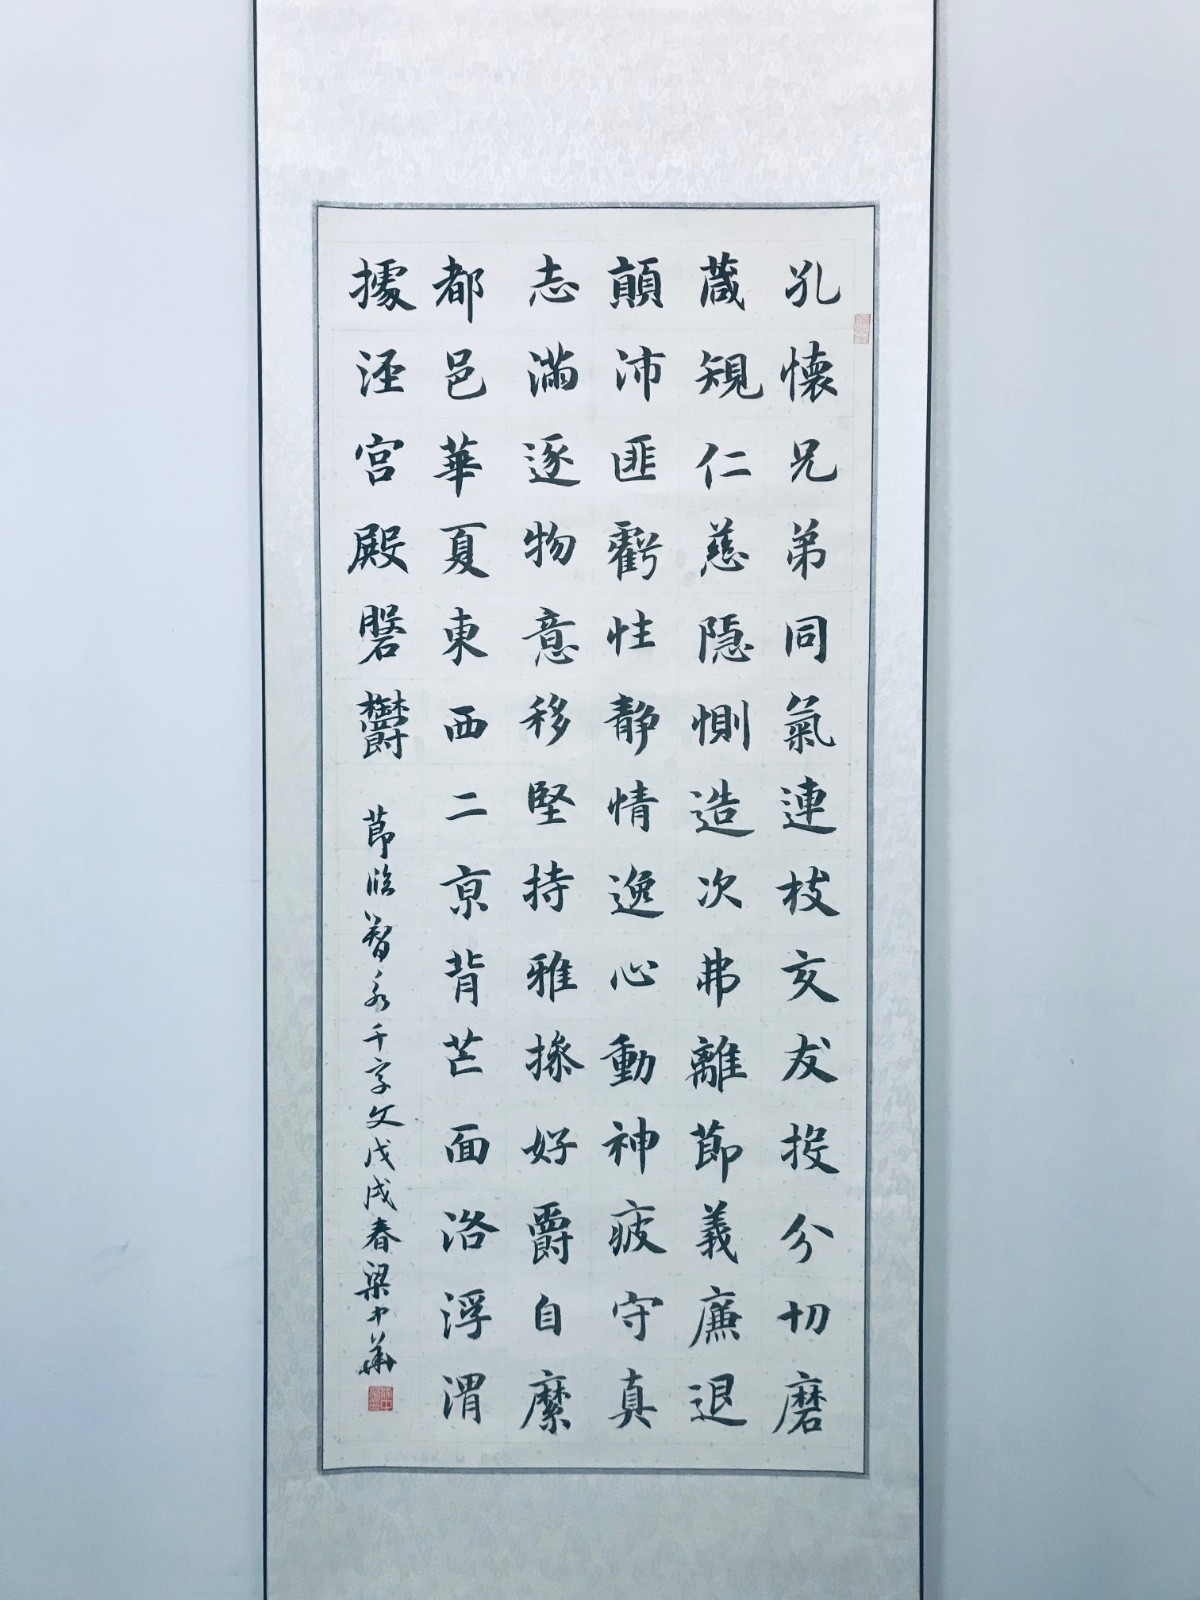 孔懷兄弟同氣連枝交友投分切磨
葴規仁慈隱惻造次弗離節義廉退
顛沛匪虧性靜情逸心動神疲守真
志滿逐物意移堅持雅操好爵自縻
都邑華夏東西二京背芒面洛浮渭
據涇宮殿磐欝
節臨智永千字文戊戌春梁中華